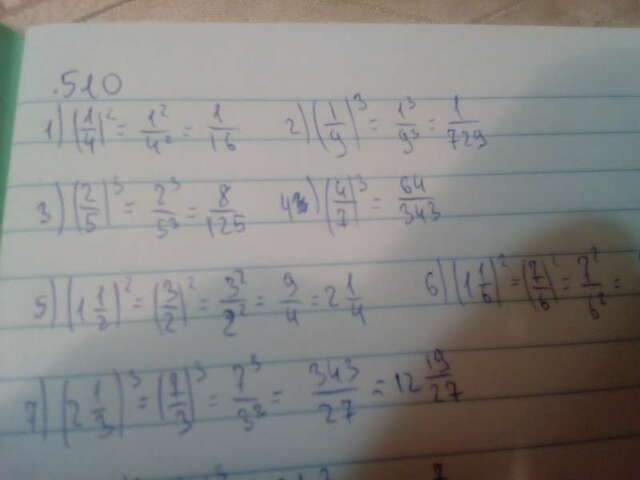 510
1) (1/4)² = 1²/4² = 1/16 2) (1/9)³ = 1³/9³ = 1/729
3) (2/5)³ = 2³/5³ = 8/125 4) (4/7)³ = 64/343
5) (1 1/2)² = (3/2)² = 3²/2² = 9/4 = 2 1/4 6) (1 1/6)² = (7/6)² = 7²/6² =
7) (2 1/3)³ = (7/3)³ = 7³/3² = 343/27 = 12 19/27